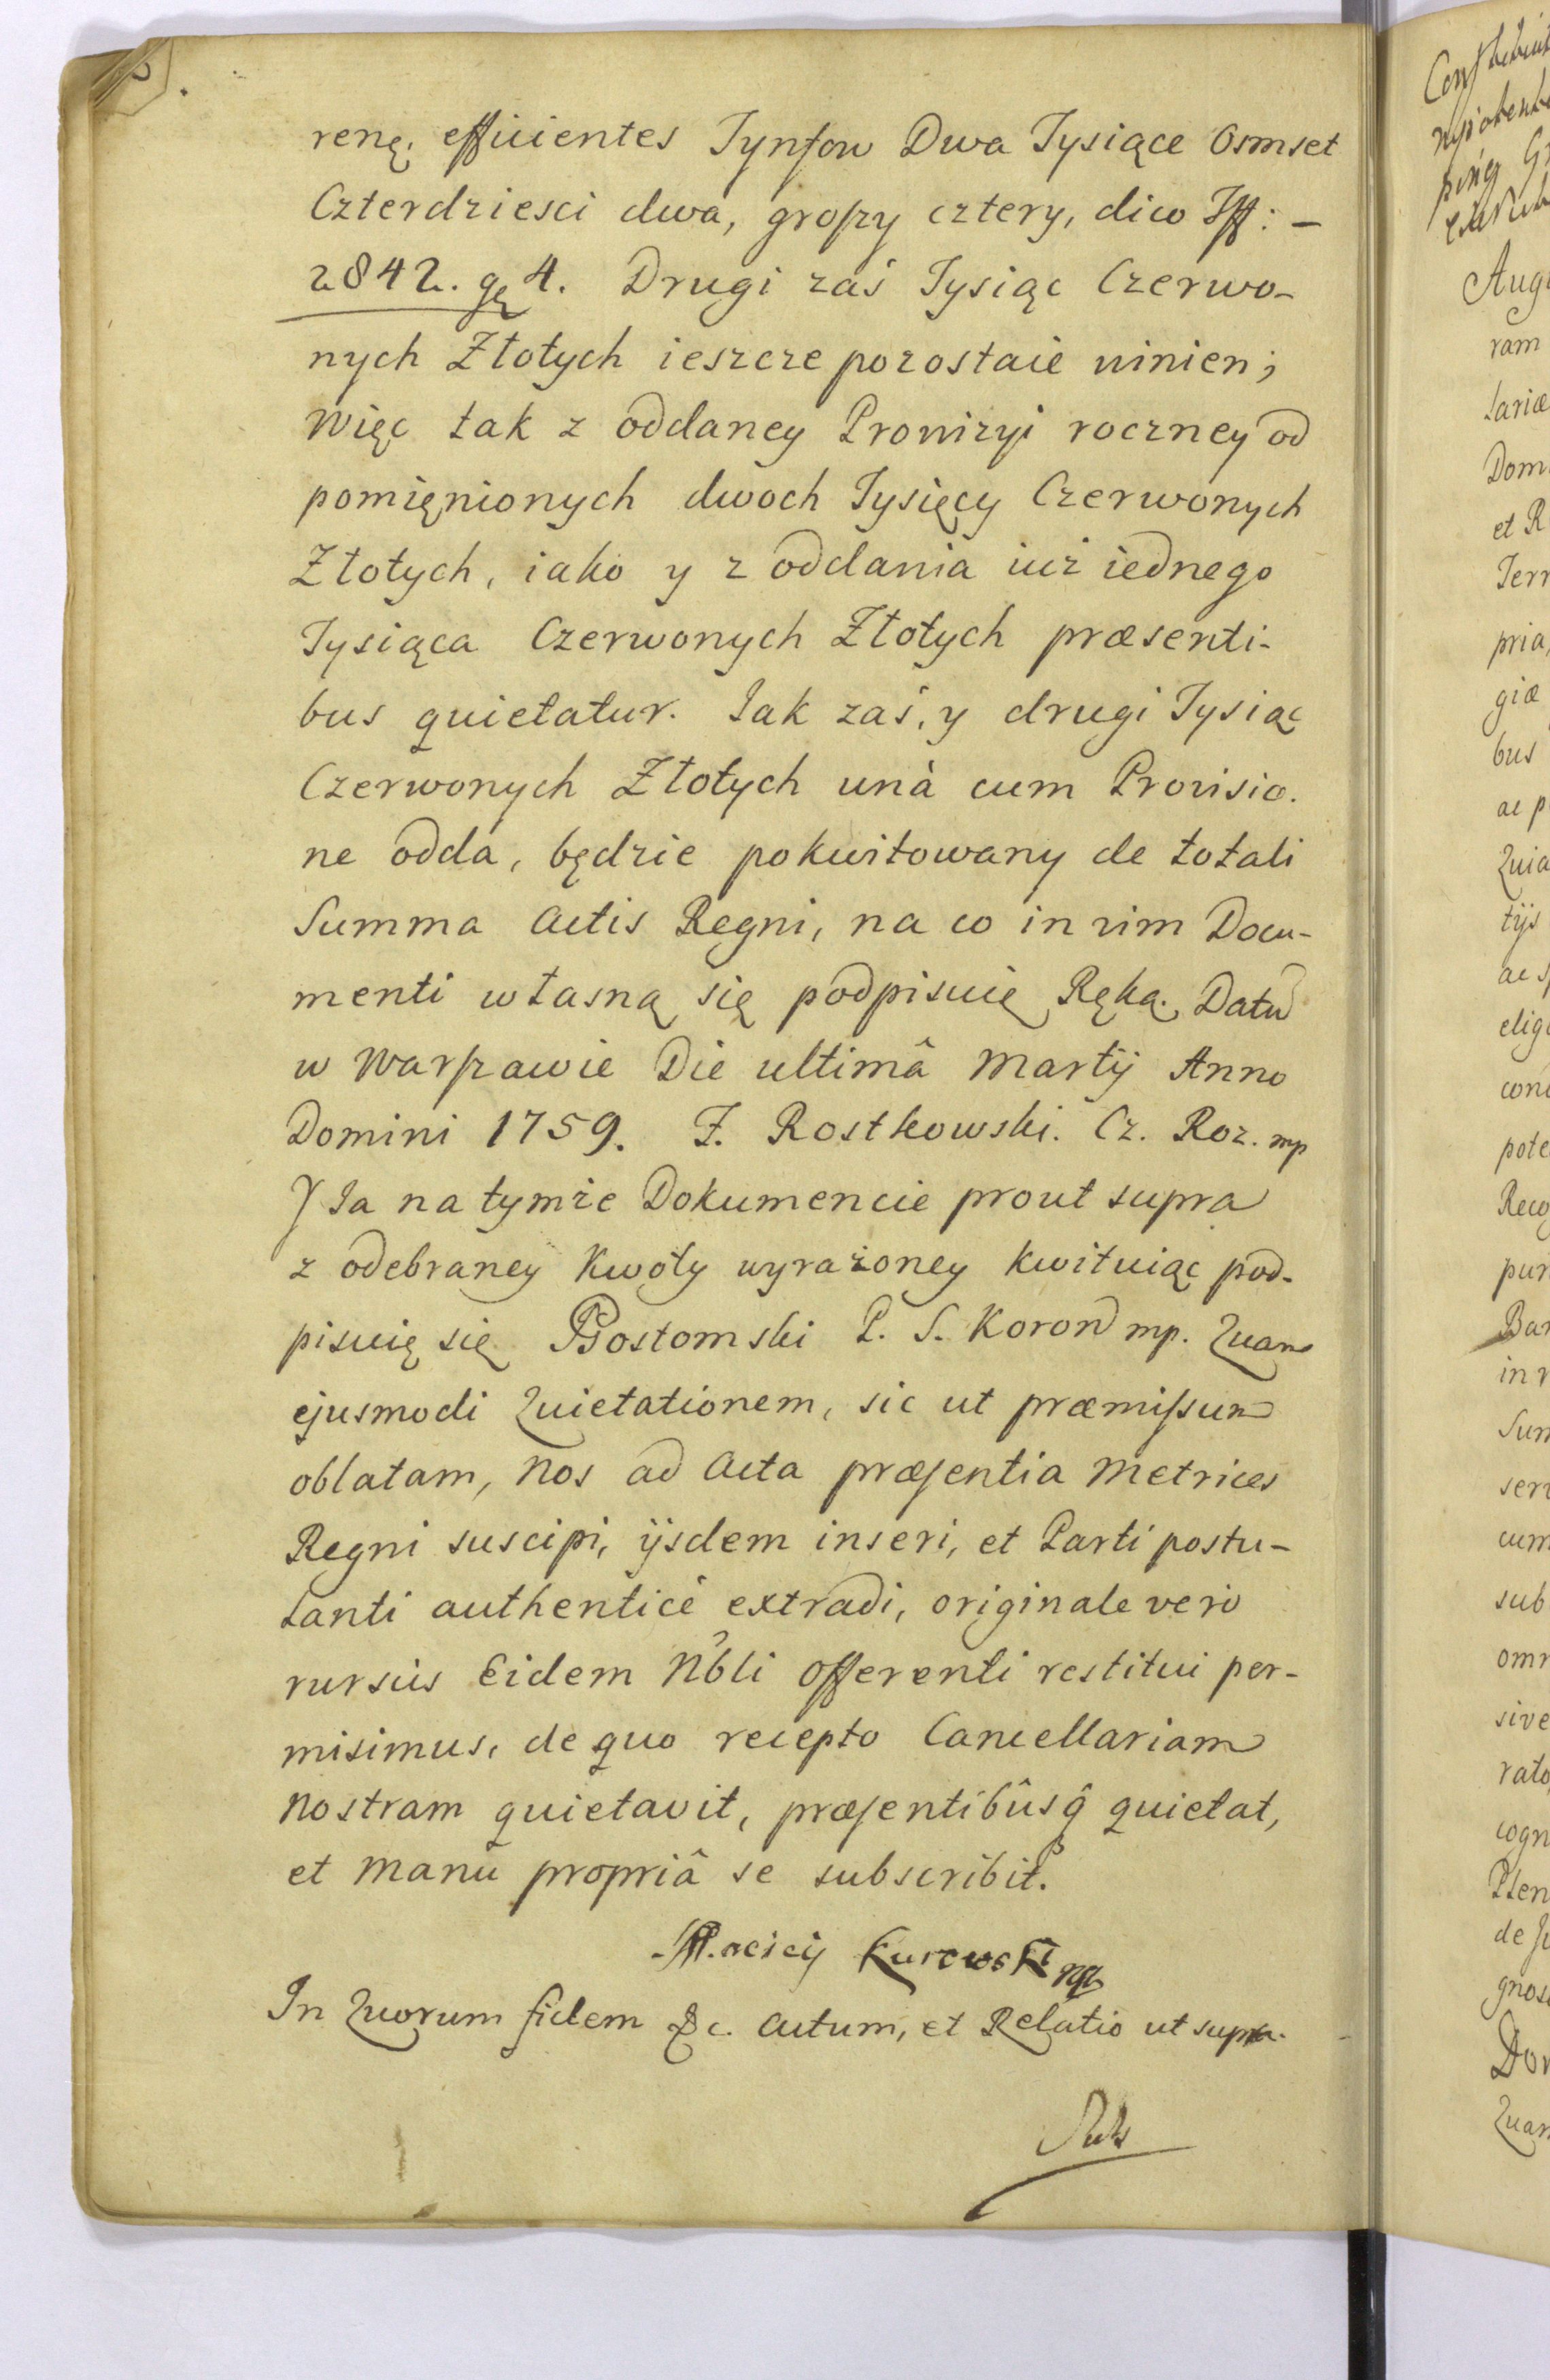 renę, efficientes Tynfow Dwa Tysiące Osmset
Czterdziesci dwa, groszy cztery, dico Tff: –
2842. gę 4. Drugi zaś Tysiąc Czerwo-
nych Złotych ieszcze pozostaie winien;
Więc tak z oddaney Prowizyi roczney od
pomięnionych dwoch Tysięcy Czerwonych
Złotych, iako y z oddania iuż iednego
Tysiąca Czerwonych Złotych præsenti-
bus quietatur. Jak zaś, y drugi Tysiąc
Czerwonych Złotych unà cum Provisio-
ne odda, będzie pokwitowany de totali
Summa Actis Regni, na co in vim Docu-
menti własną się podpisuię Ręką. Datũ
w Warszawie Die ultimâ Martij Anno
Domini 1759. F. Rostkowski. Cz. Roz. mp
Y Ja na tymże Dokumencie prout supra
z odebraney Kwoty wyrażoney kwituiąc pod-
pisuię się Rostomski P. S. Koron mp. Quam
ejusmodi Quietationem, sic ut præmissum
oblatam, Nos ad Acta præsentia Metrices
Regni suscipi, ijsdem inseri, et Parti postu-
lanti authenticè extradi, originale verò
rursùs Eidem Nobli Offerenti restitui per-
misimus, de quo recepto Cancellariam
Nostram quietavit, præsentibûsq̂ quietat,
et Manû propriâ se subscribit.
Maciey Kurowski mp
In Quorum fidem &c. Actum, et Relatio ut supra.